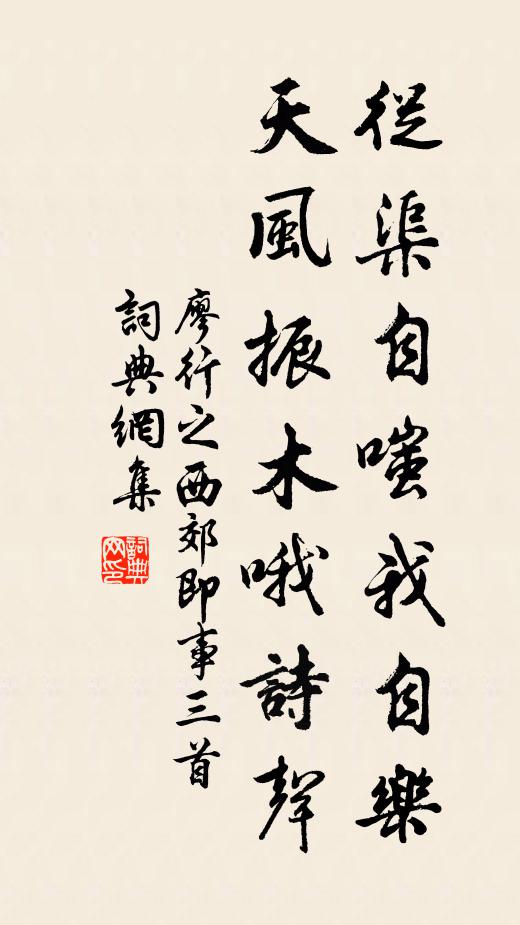 從渠自嗤我自樂
天風振木哦詩聲
廖行之西郊即事三首
詞典網集
詞典网印